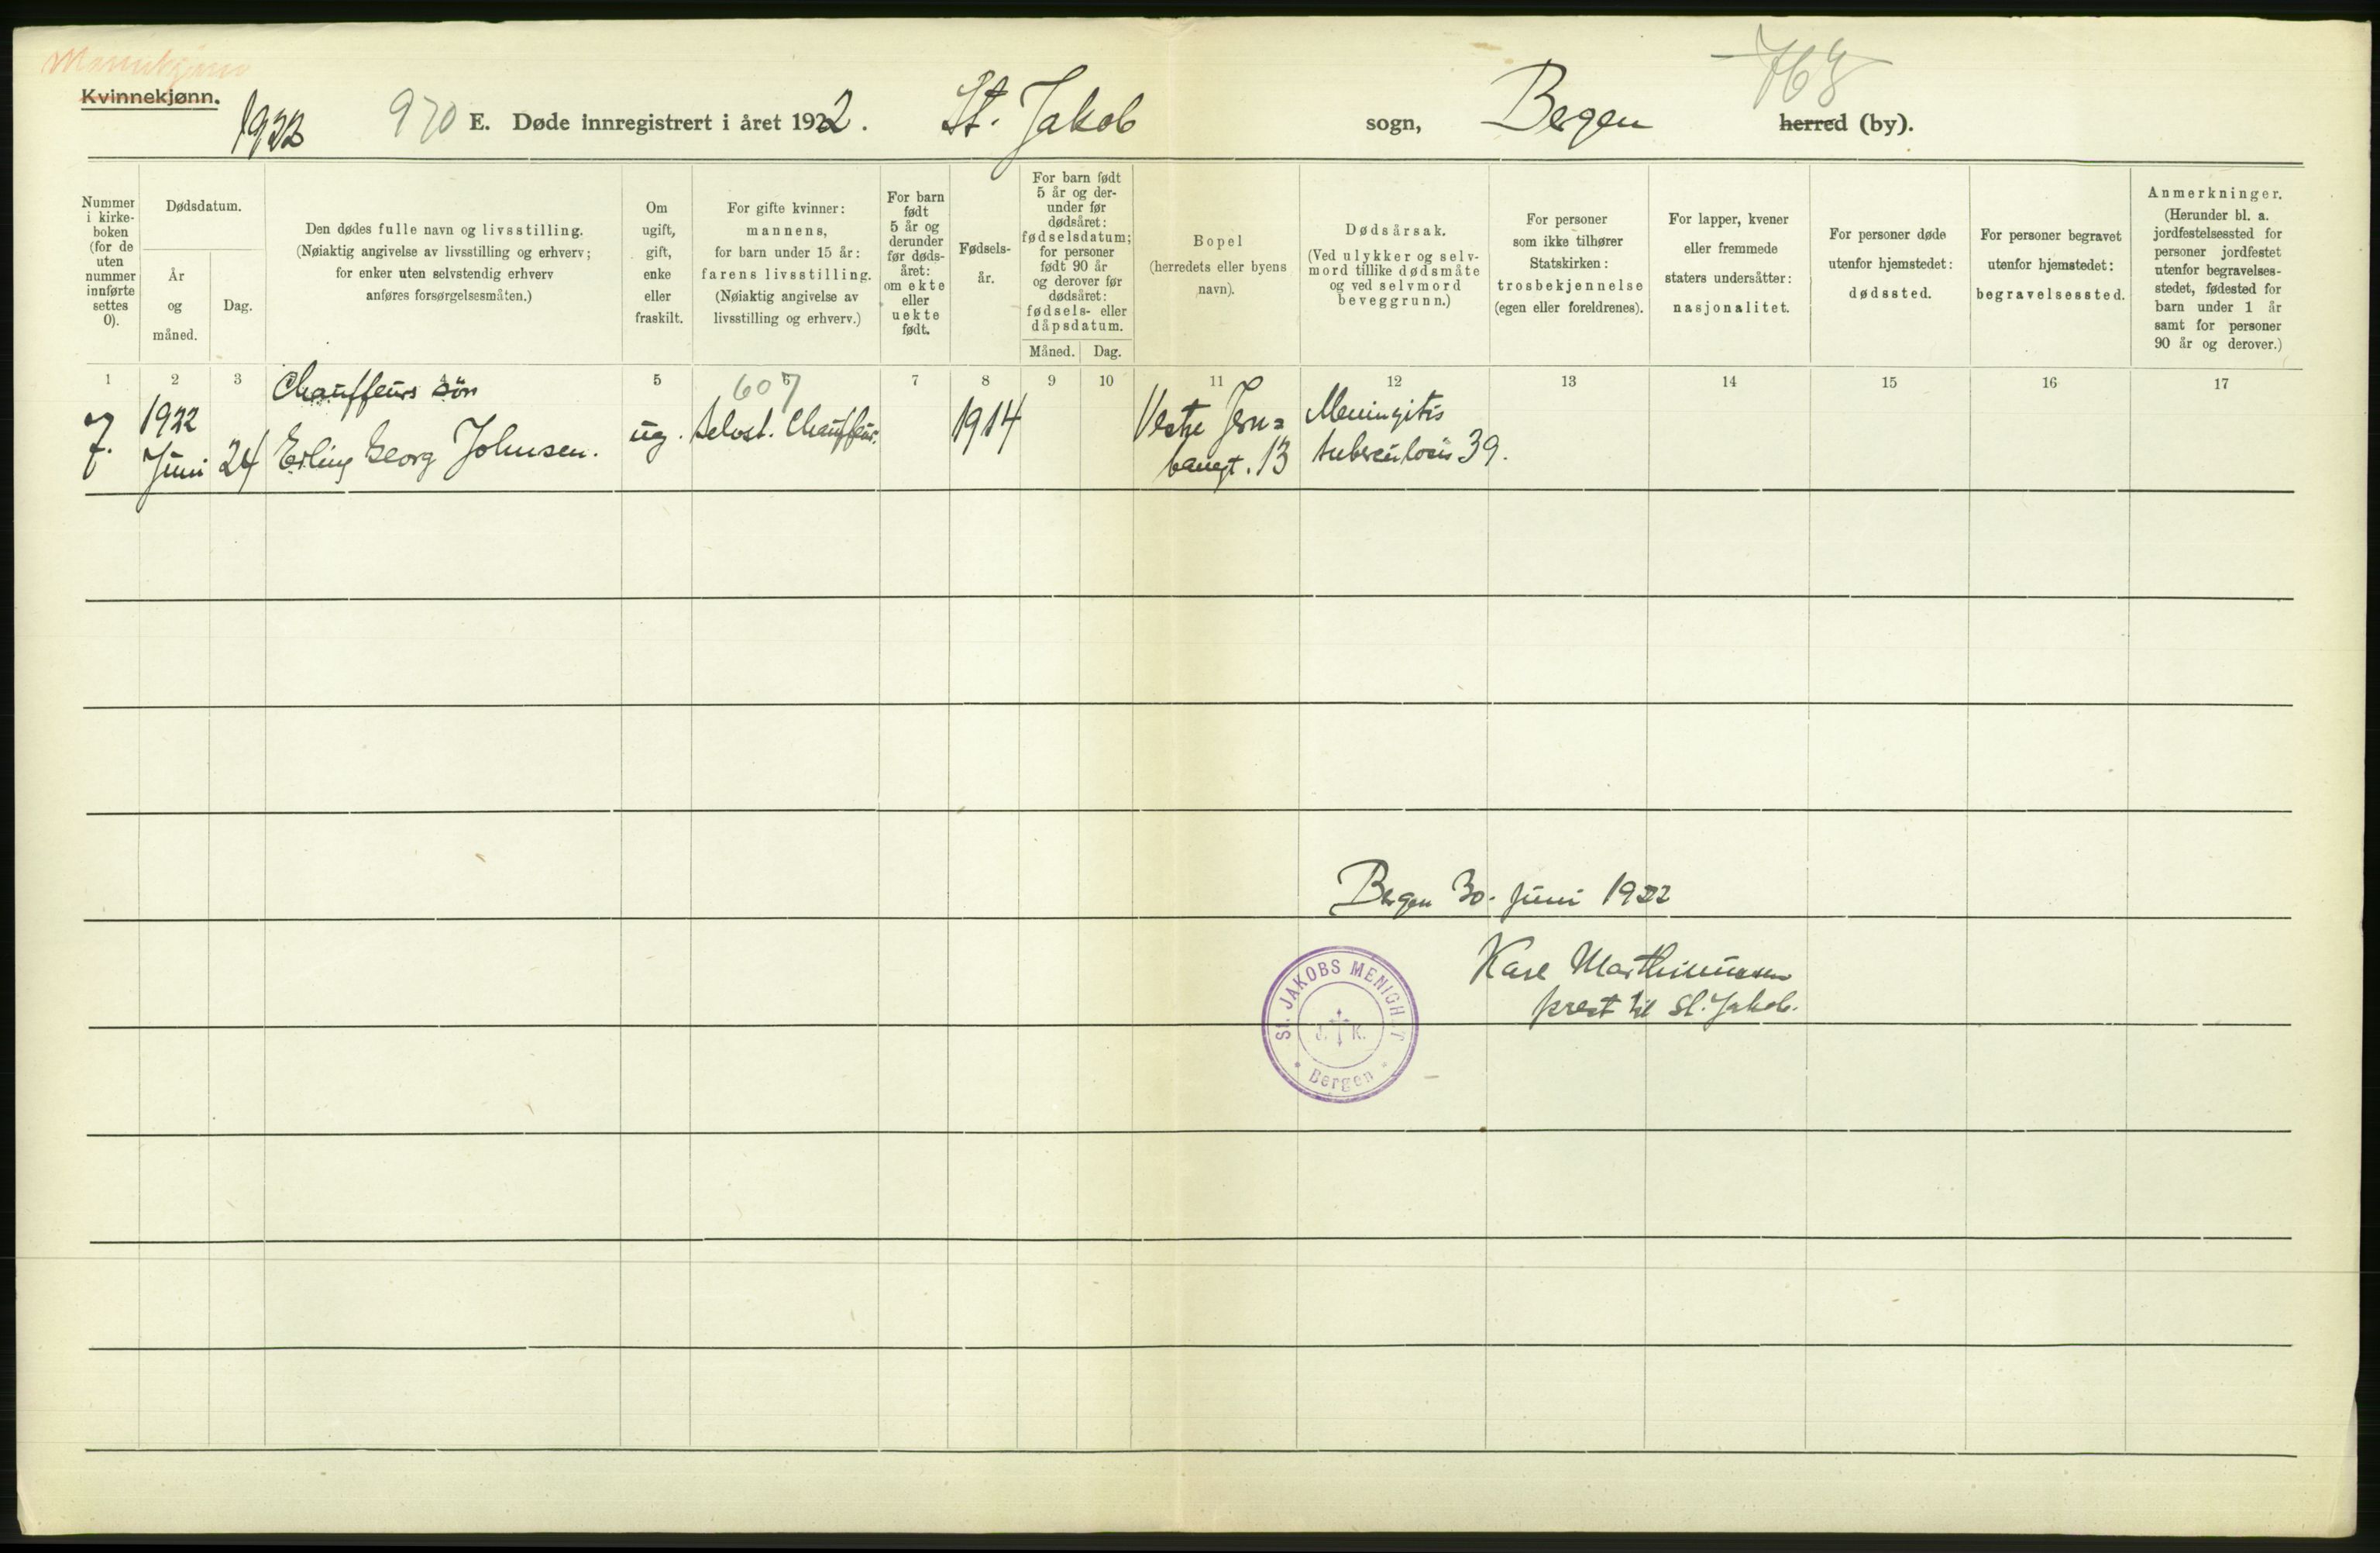 Mannkjønn
Kvinnekjønn.
1922
970 E. Døde innregistrert i året 1922. St. Jakob sogn, Bergen herred (by).
768
Nummer
i kirke-
boken
(for de
uten
nummer
innførte
settes
0).
Dødsdatum.
År
og
måned.
Dag.
Den dødes fulle navn og livsstilling.
(Nøiaktig angivelse av livsstilling og erhverv;
for enker uten selvstendig erhverv
anføres forsørgelsesmåten.)
Om
ugift,
gift,
enke
eller
fraskilt.
For gifte kvinner:
mannens,
for barn under 15 år:
farens livsstilling.
(Nøiaktig angivelse av
livsstilling og erhverv.)
For barn
født
5 år og
derunder
før døds-
året:
om ekte
eller
uekte
født.
Fødsels-
år.
For barn født
5 år og der-
under før
dødsåret:
fødselsdatum;
for personer
født 90 år
og derover før
dødsåret:
fødsels- eller
dåpsdatum.
Måned. Dag.
Bopel
(herredets eller byens
navn).
Dødsårsak.
(Ved ulykker og selv-
mord tillike dødsmåte
og ved selvmord
beveggrunn.)
For personer
som ikke tilhører
Statskirken:
trosbekjennelse
(egen eller foreldrenes).
For lapper, kvener
eller fremmede
staters undersåtter:
nasjonalitet.
For personer døde
utenfor hjemstedet:
dødssted.
For personer begravet
utenfor hjemstedet:
begravelsessted.
Anmerkninger.
(Herunder bl. a.
jordfestelsessted for
personer jordfestet
utenfor begravelses-
stedet, fødested for
barn under 1 år
samt for personer
90 år og derover.)
1 2 3 5 6 7 8 9 10 11 12 13 14 15 16 17
7.
1922
Juni 24
Chauffeurs søn
Erling Georg Johnsen.
ug.
607
selvst. Chauffeur.
1914
Vestre Jern=
banegt. 13
Meningitis
tuberculosis 39.
Bergen 30. juni 1922
Karl Marthinussen
prest til St. Jakob.
St. JAKOBS MENIGHET
J. K.
Bergen